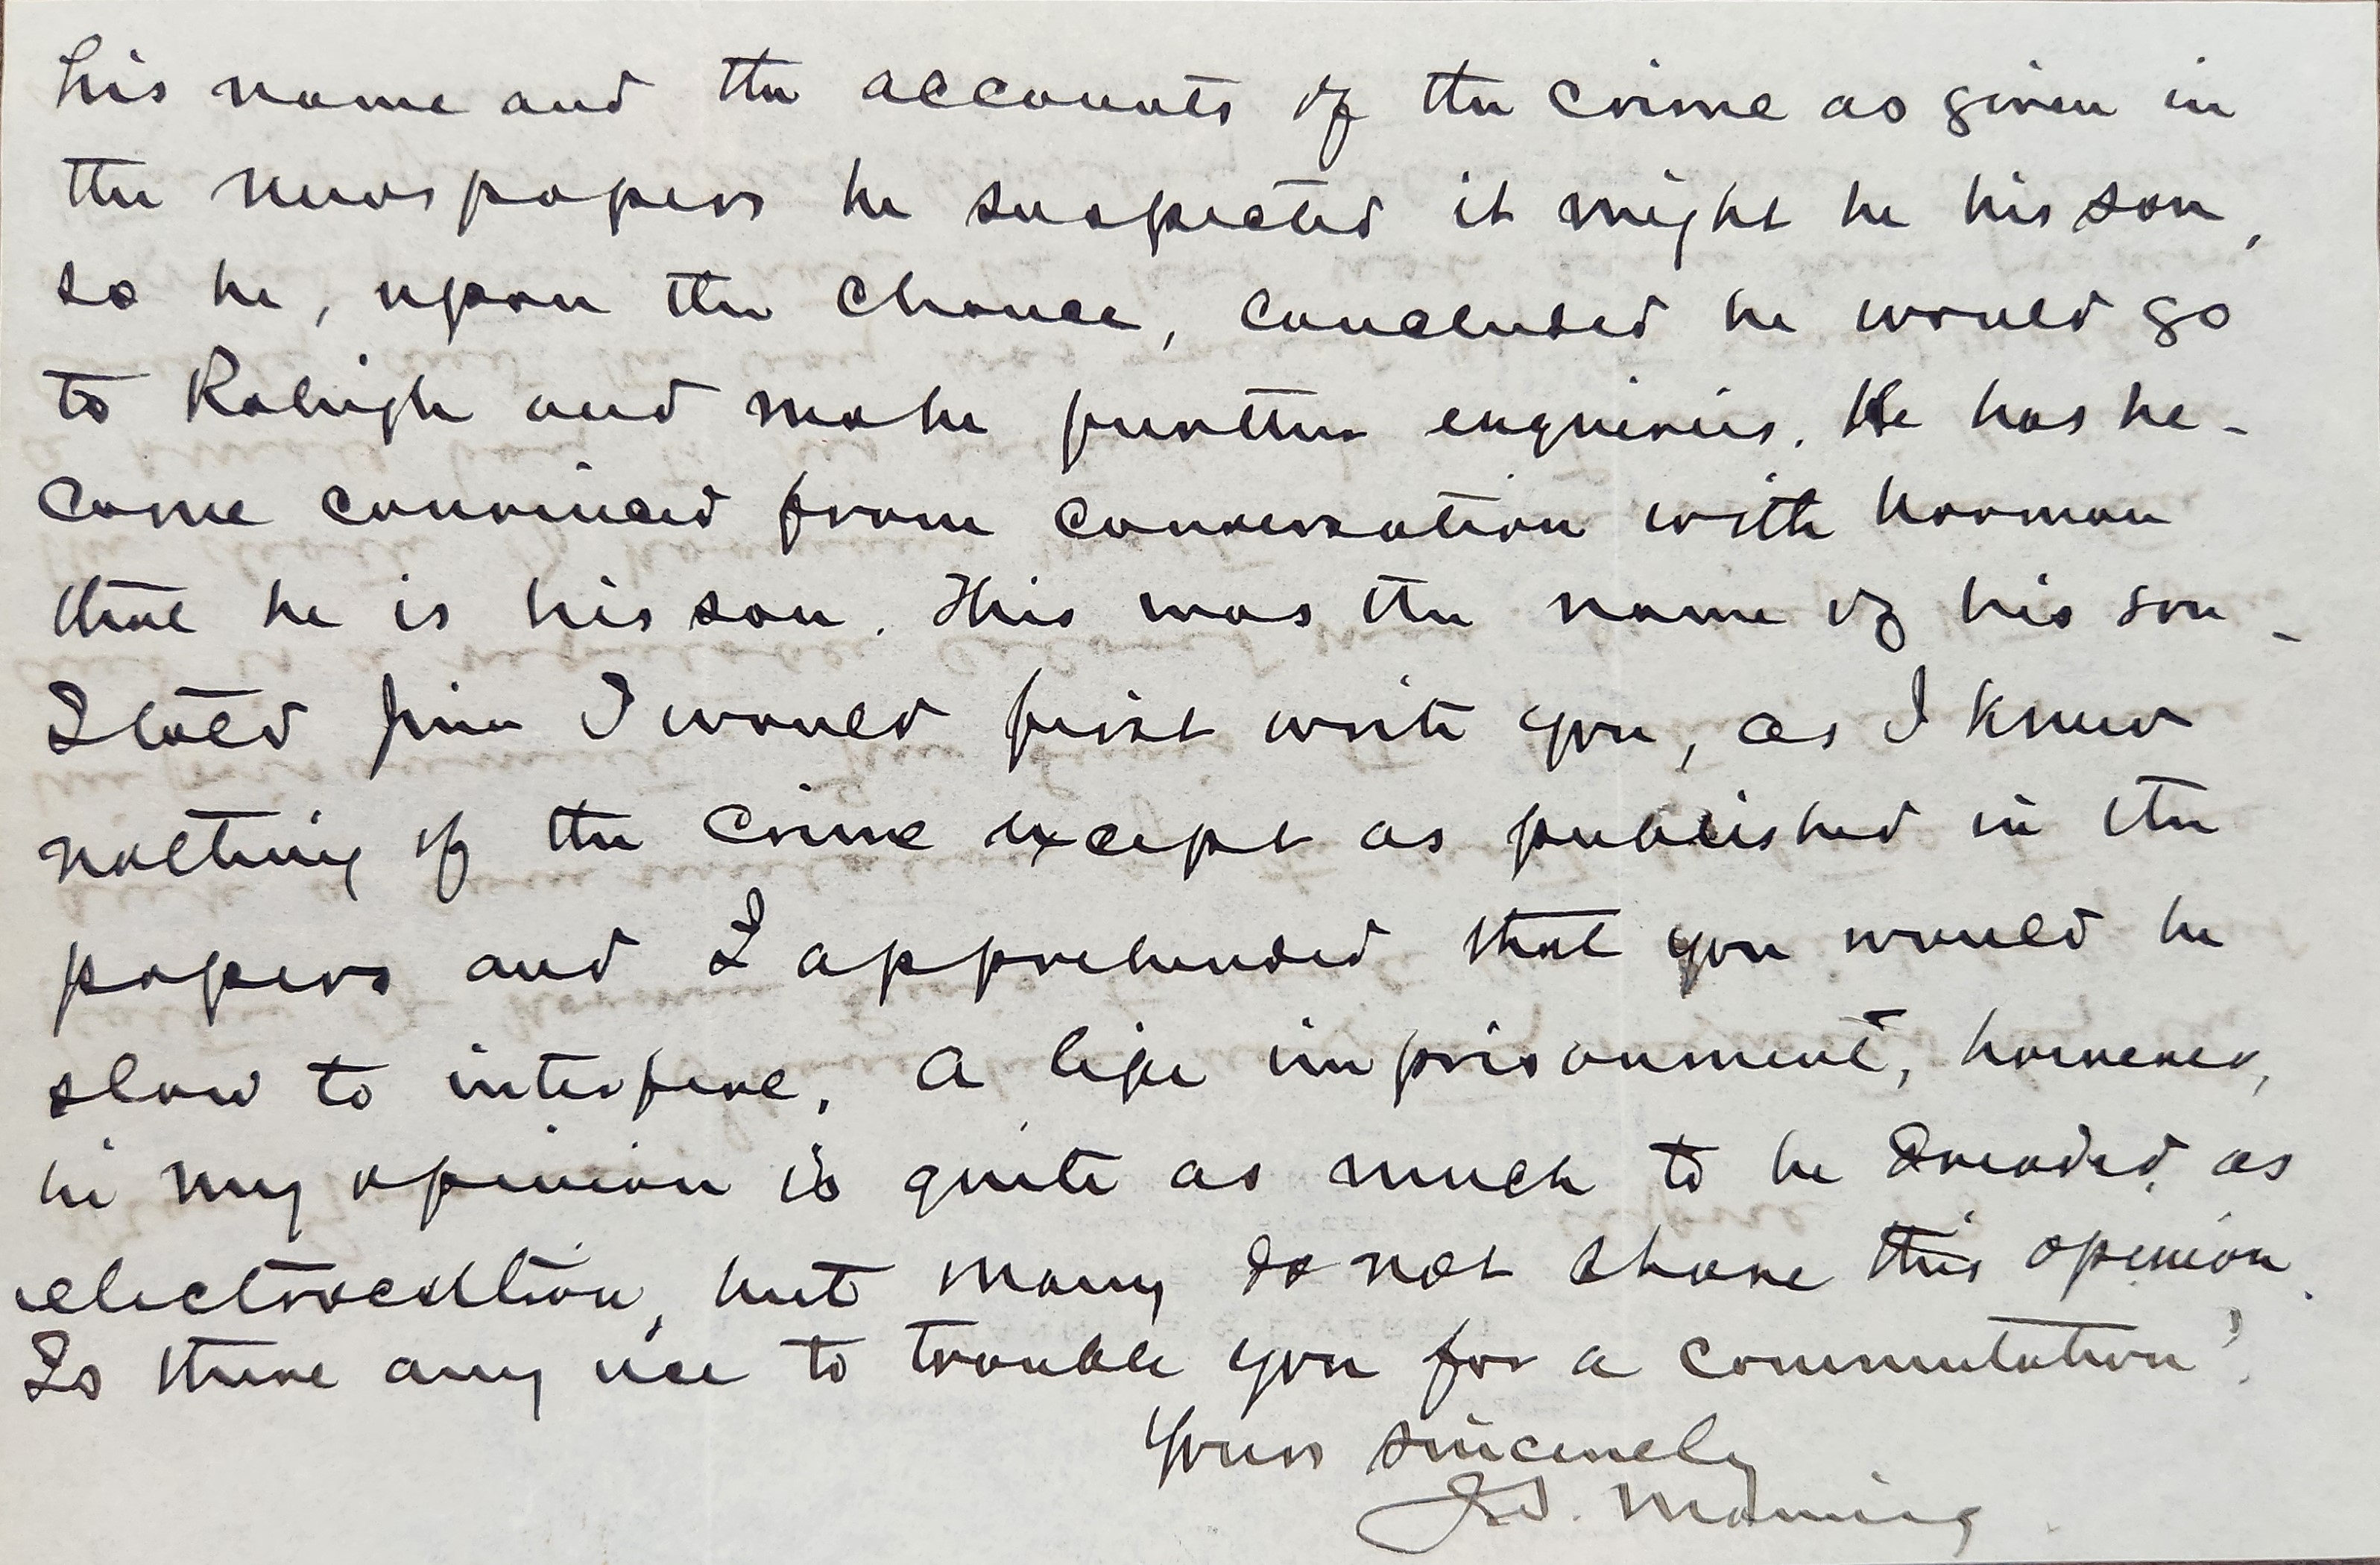 his name and the accounts of the crime as given in
the newspapers he suspected it might be his son,
so he, upon the chance, concluded he would go
to Raleigh and make further enquiries. He has be-
come convinced from conversation with Norman
that he is his son. This was the name of his son -
I told him I would first write you, as I knew
nothing of the crime except as published in the
papers and I apprehended that you would be
slow to interfere. A life imprisonment, however,
in my opinion is quite as much to be dreaded as
electrocution, but many do not share this opinion.
Is there any use to trouble you for a commutation?
Yours sincerely
J.S. Manning